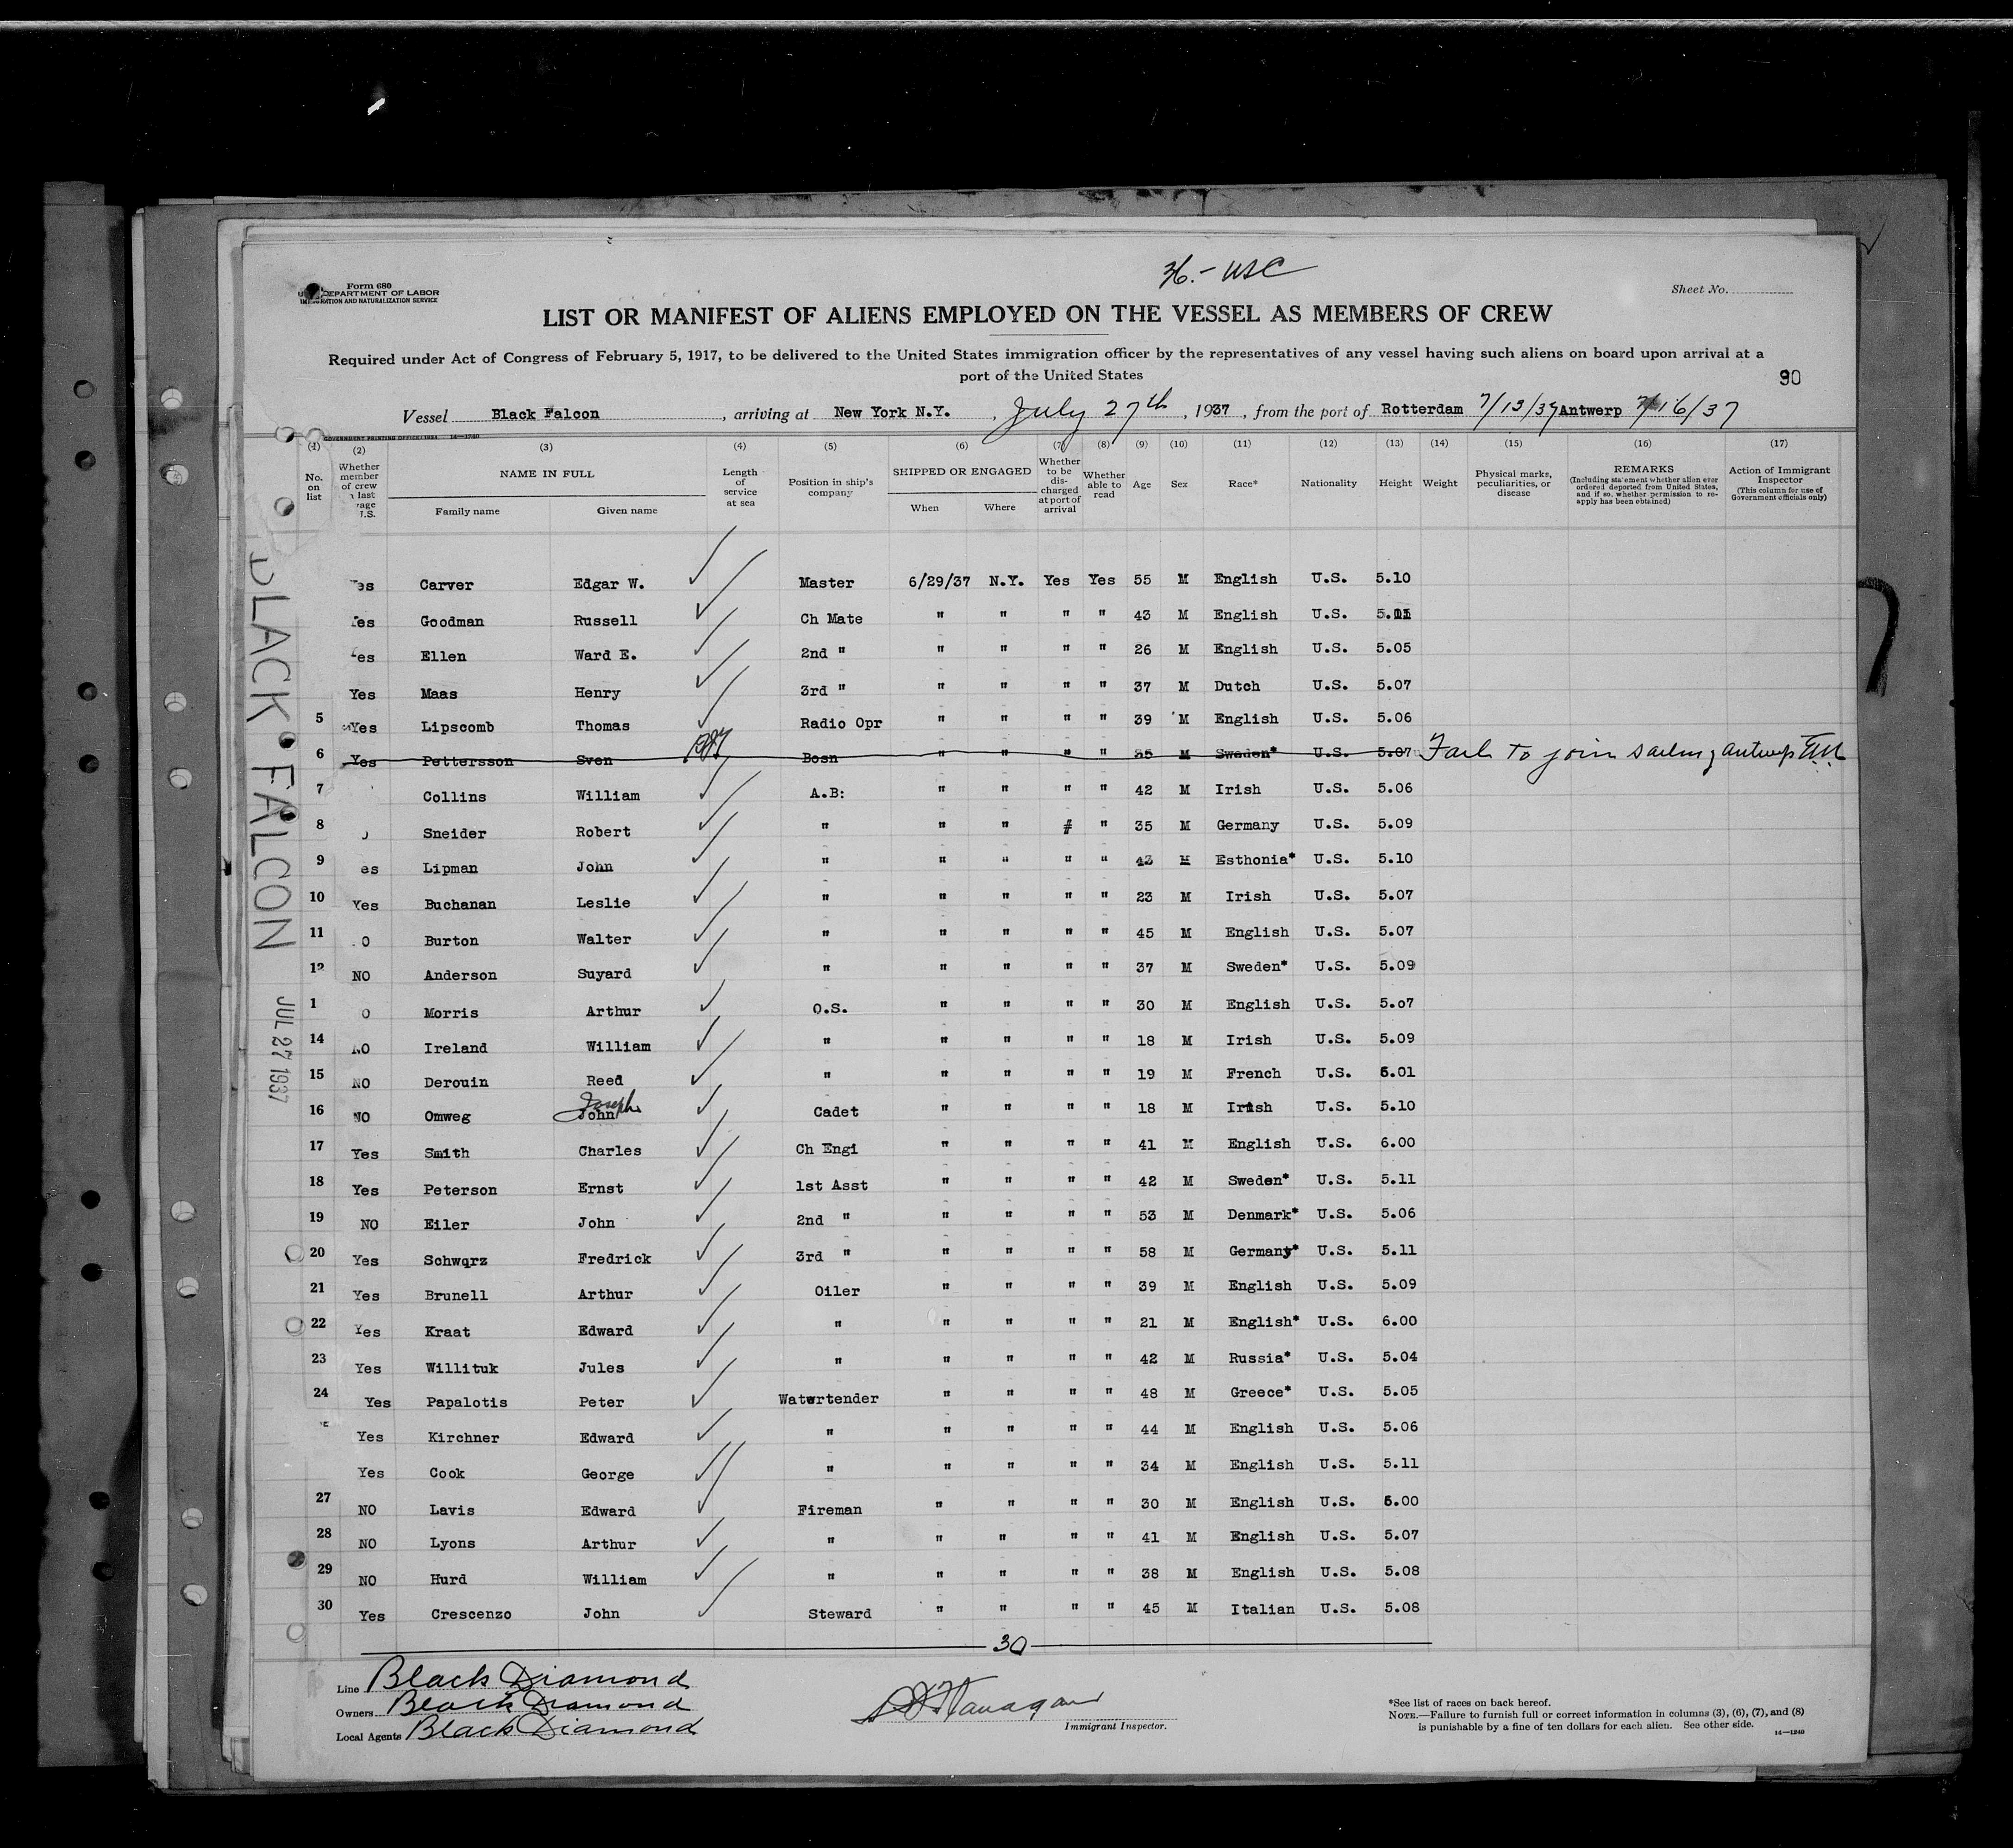 36.- USC
Form 680
DEPARTMENT OF LABOR
IMMIGRATION AND NATURALIZATION SERVICE
Sheet No.
LIST OR MANIFEST OF ALIENS EMPLOYED ON THE VESSEL AS MEMBERS OF CREW
Required under Act of Congress of February 5, 1917, to be delivered to the United States immigration officer by the representatives of any vessel having such aliens on board upon arrival at a
port of the United States
90
Vessel Black Falcon, arriving at New York N.Y., July 27th, 1937, from the port of Rotterdam 7/13/37 Antwerp 7/16/37
GOVERNMENT PRINTING OFFICE 14—1240
(1) (2) (3) (4) (5) (6) (7) (8) (9) (10) (11) (12) (13) (14) (15) (16) (17)
No. on list
Whether member of crew last U.S.
NAME IN FULL
Family name Given name
Length of service at sea
Position in ship's company
SHIPPED OR ENGAGED
When Where
Whether to be discharged at port of arrival
Whether able to read
Age
Sex
Race*
Nationality
Height
Weight
Physical marks, peculiarities, or disease
REMARKS
(Including statement whether alien ever ordered deported from United States, and if so, whether permission to reapply has been obtained)
Action of Immigrant Inspector
(This column for use of Government officials only)
es Carver Edgar W. Master 6/29/37 N.Y. Yes Yes 55 M English U.S. 5.10
es Goodman Russell Ch Mate " " " " 43 M English U.S. 5.11
es Ellen Ward E. 2nd " " " " " 26 M English U.S. 5.05
Yes Maas Henry 3rd " " " " " 37 M Dutch U.S. 5.07
5 Yes Lipscomb Thomas Radio Opr " " " " 39 M English U.S. 5.06
6 Yes Pettersson Sven Bosn " " " " 35 M Sweden* U.S. 5.07 Fail to join sailing antwerp
7 Collins William A.B: " " " " 42 M Irish U.S. 5.06
8 Sneider Robert " " " " 35 M Germany U.S. 5.09
9 es Lipman John " " " " " 43 M Esthonia* U.S. 5.10
10 Yes Buchanan Leslie " " " " " 23 M Irish U.S. 5.07
11 O Burton Walter " " " " " 45 M English U.S. 5.07
12 NO Anderson Suyard " " " " " 37 M Sweden* U.S. 5.09
1 O Morris Arthur O.S. " " " " 30 M English U.S. 5.07
14 NO Ireland William " " " " " 18 M Irish U.S. 5.09
15 NO Derouin Reed " " " " " 19 M French U.S. 6.01
16 NO Omweg John Joseph Cadet " " " " 18 M Irish U.S. 5.10
17 Yes Smith Charles Ch Engi " " " " 41 M English U.S. 6.00
18 Yes Peterson Ernst 1st Asst " " " " 42 M Sweden* U.S. 5.11
19 NO Eiler John 2nd " " " " " 53 M Denmark* U.S. 5.06
20 Yes Schwqrz Fredrick 3rd " " " " " 58 M Germany* U.S. 5.11
21 Yes Brunell Arthur Oiler " " " " 39 M English U.S. 5.09
22 Yes Kraat Edward " " " " " 21 M English* U.S. 6.00
23 Yes Willituk Jules " " " " " 42 M Russia* U.S. 5.04
24 Yes Papalotis Peter Watertender " " " " 48 M Greece* U.S. 5.05
Yes Kirchner Edward " " " " " 44 M English U.S. 5.06
Yes Cook George " " " " " 34 M English U.S. 5.11
27 NO Lavis Edward Fireman " " " " 30 M English U.S. 6.00
28 NO Lyons Arthur " " " " " 41 M English U.S. 5.07
29 NO Hurd William " " " " " 38 M English U.S. 5.08
30 Yes Crescenzo John Steward " " " " 45 M Italian U.S. 5.08
30
BLACK FALCON
JUL 27 1937
Line Black Diamond
Owners Black Diamond
Local Agents Black Diamond
Flanagan
Immigrant Inspector.
*See list of races on back hereof.
NOTE.—Failure to furnish full or correct information in columns (3), (6), (7), and (8)
is punishable by a fine of ten dollars for each alien. See other side.
14—1240